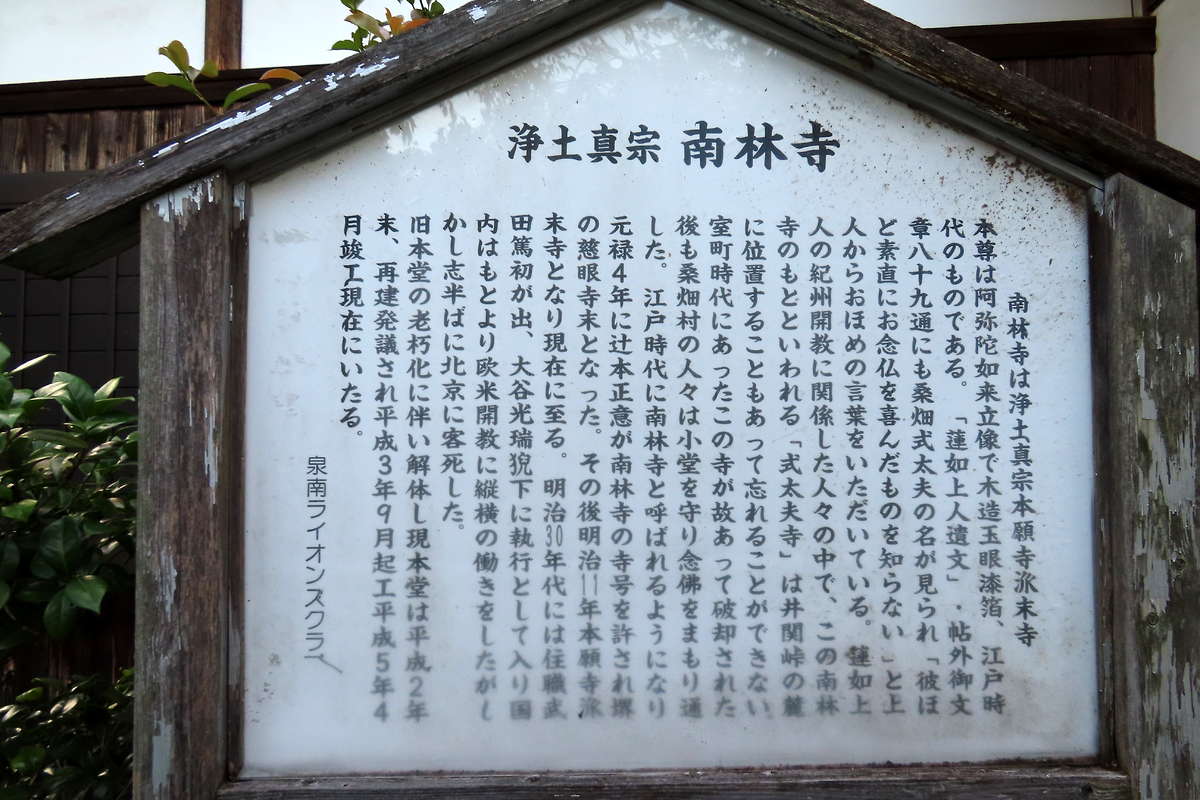 浄土真宗 南林寺
南林寺は浄土真宗本願寺派末寺
本尊は阿弥陀如来立像で木造玉眼漆箔、江戸時
代のものである。「蓮如上人遺文」・帖外御文
章八十九通にも桑畑式太夫の名が見られ「彼ほ
ど素直にお念仏を喜んだものを知らない」と上
人からおほめの言葉をいただいている。蓮如上
人の紀州開教に関係した人々の中で、この南林
寺のもとといわれる「式太夫寺」は井関峠の麓
に位置することもあって忘れることができない。
室町時代にあったこの寺が故あって破却された
後も桑畑村の人々は小堂を守り念佛をまもり通
した。江戸時代に南林寺と呼ばれるようになり
元禄4年に辻本正意が南林寺の寺号を許され堺
の慈眼寺末となった。その後明治11年本願寺派
末寺となり現在に至る。明治30年代には住職武
田篤初が出、大谷光瑞猊下に執行として入り国
内はもとより欧米開教に縦横の働きをしたがし
かし志半ばに北京に客死した。
旧本堂の老朽化に伴い解体し現本堂は平成2年
末、再建発議され平成3年9月起工平成5年4
月竣工現在にいたる。
泉南ライオンズクラ